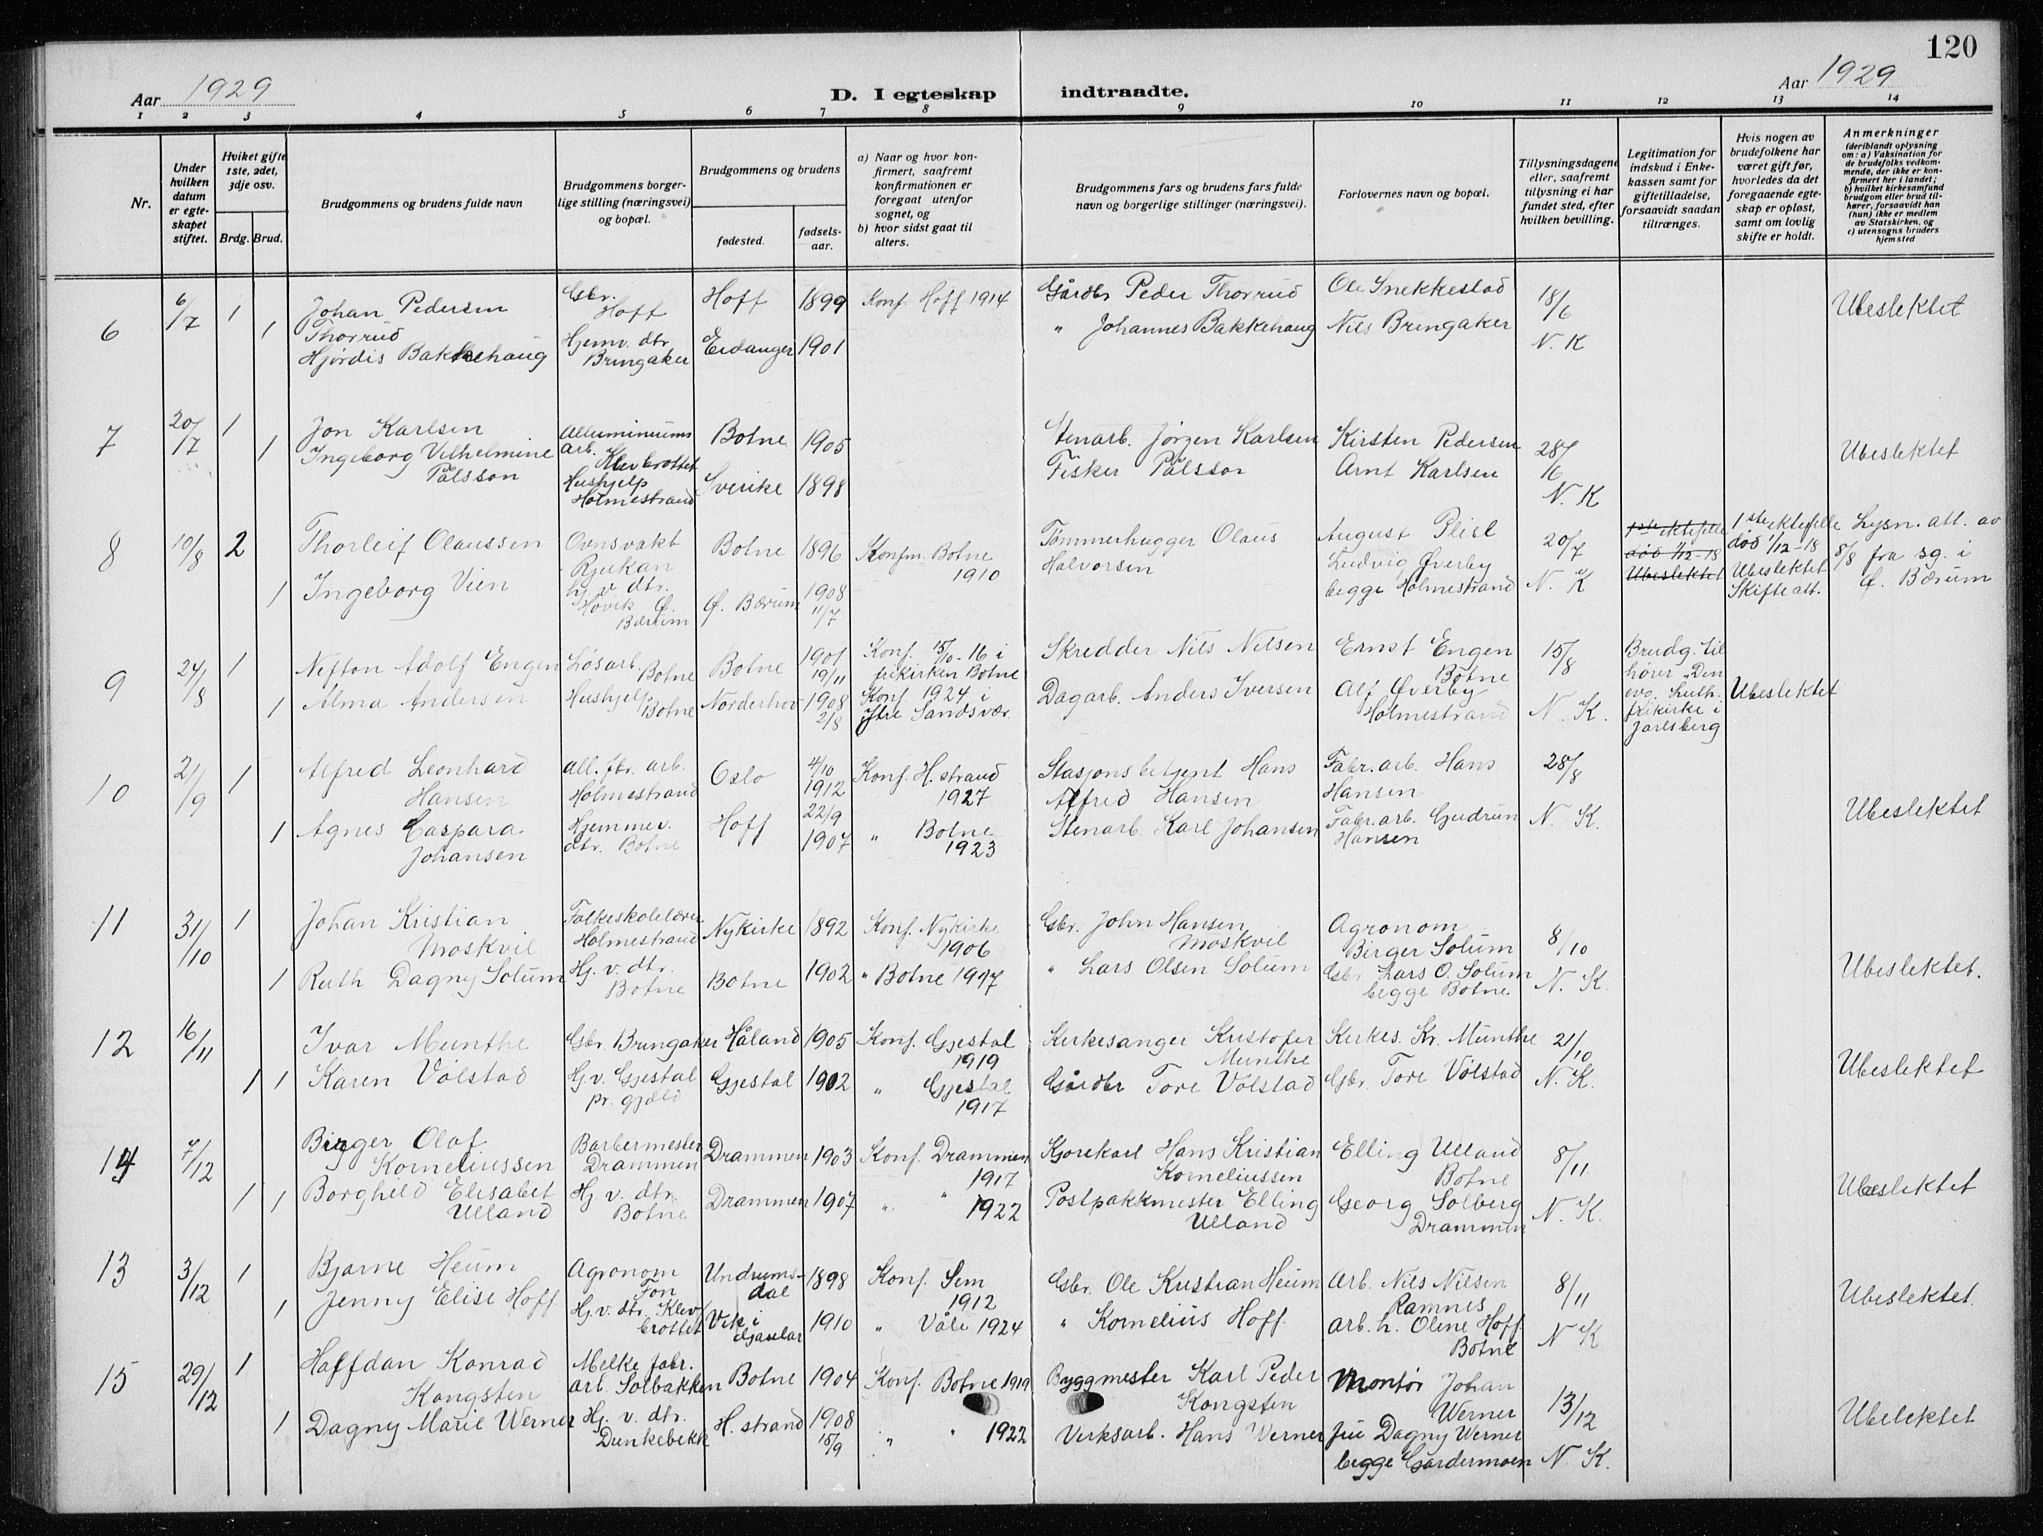 120
Aar 1929
D. I egteskap indtraadte.
Aar 1929
1 2 3 4 5 6 7 8 9 10 11 12 13 14
Nr.
Under hvilken datum er egteskapet stiftet.
Hviket gifte 1ste, 2det, 3dje osv.
Brdg. Brud.
Brudgommens og brudens fulde navn
Brudgommens borgerlige stilling (næringsvei) og bopæl.
Brudgommens og brudens
fødested.
fødselsaar.
a) Naar og hvor konfirmert, saafremt konfirmationen er foregaat utenfor sognet, og
b) hvor sidst gaat til alters.
Brudgommens fars og brudens fars fulde navn og borgerlige stillinger (næringsvei).
Forlovernes navn og bopæl.
Tillysningsdagene eller, saafremt tillysning ei har fundet sted, efter hvilken bevilling.
Legitimation for indskud i Enkekassen samt for giftetilladelse, forsaavidt saadan tiltrænges.
Hvis nogen av brudefolkene har været gift før, hvorledes da det foregaaende egteskap er opløst, samt om lovlig skifte er holdt.
Anmerkninger
(deriblandt oplysning om: a) Vaksination for de brudefolks vedkommende, der ikke er konfirmert her i landet; b) hvilket kirkesamfund brudgom eller brud tilhører, forsaavidt han (hun) ikke er medlem av Statskirken, og c) utensogns bruders hjemsted
6 6/7 1 Johan Pedersen Thorrud Gbr. Hoff Hoff 1899 Konf Hoff 1914 Gårdbr Peder Thorrud Ole Snekkestad 18/6 N. K Ubeslektet
1 Hjördis Bakkehaug Hjemv. dtr Bringaker Eidanger 1901 " Johannes Bakkehaug Nils Bringaker
7 20/7 1 Jon Karlsen Alluminiums arb. Klevbrottet Botne 1905 Stenarb. Jörgen Karlsen Kirsten Pedersen 28/6 N. K Ubeslektet
1 Ingeborg Vilhelmine Pålsson Hushjelp Holmestrand Sverike 1898 Fisker Pålsson Arnt Karlsen
8 10/8 2 Thorleif Olaussen Ovnsvakt Rjukan Botne 1896 Konfm. Botne 1910 Tömmerhugger Olaus Halvorsen August Plisl 20/7 N. K 1ste ektefelle död 1/12-18 Ubeslektet 1ste ektefelle död 1/12-18 Ubeslektet Skifteatt. Lysn. att. av 8/8 fra sg. i Ö. Bærum
1 Ingeborg Vien hj. v dtr. Hövik Ö. Bærum Ö. Bærum 1908 11/7 Ludvig Överby begge Holmestrand
9 24/8 1 Nefton Adolf Engen Lösarb. Botne Botne 1901 19/11 Konf. 15/10-16 i frikirken Botne Skredder Nils Nilsen Ernst Engen Botne 15/8 N. K. Brudg. til hörer "Den evg. Luth. frikirke i Jarlsberg Ubeslektet
1 Alma Andersen Hushjelp Botne Norderhov 1908 2/8 Konf. 1924 i Ytre Sandsvær. Dagarb. Anders Iversen Alf Överby Holmestrand
10 21/9 1 Alfred Leonhard Hansen All. fbr. arb. Holmestrand Oslo 4/10 1912 Konf. H.strand 1927 Stasjonsbetjent Hans Alfred Hansen Fabr. arb. Hans Hansen 28/8 N. K. Ubeslektet
1 Agnes Caspara Johansen Hjemmev. dtr. Botne Hoff 22/9 1907 " Botne 1923 Stenarb. Karl Johansen Fabr. arb. Gudrun Hansen
11 31/10 1 Johan Kristian Moskvil Folkeskolelærer Holmestrand Nykirke 1892 Konf. Nykirke 1906 Gbr. John Hansen Moskvil Agronom Birger Solum 8/10 N. K. Ubeslektet.
1 Ruth Dagny Solum Hj. v. dtr. Botne Botne 1902 " Botne 1917 " Lars Olsen Solum Gbr. Lars O. Solum begge Botne
12 16/11 Ivar Munthe Gbr. Bringaker Håland 1905 Konf. Gjestal 1919 Kirkesanger Kristofer Munthe Kirkes. Kr. Munthe 21/10 N. K. Ubeslektet
1 1 Karen Völstad Hj. v. Gjestal pr. gjeld Gjestal 1902 " Gjestal 1917 Gårdbr Tore Völstad Gbr. Tore Völstad
14 7/12 Birger Olaf Korneliussen Barbermester Drammen Drammen 1903 Konf. Drammen 1917 Kjörekarl Hans Kristian Korneliussen Elling Ulland Botne 8/11 N. K. Ubeslektet
1 1 Borghild Elisabet Ulland Hj v. dtr Botne Drammen 1907 " " 1922 Postpakkmester Elling Ulland Georg Solberg Drammen
13 3/12 1 Bjarne Heum Agronom Fon Undrumsdal 1898 Konf. Sem 1912 Gbr. Ole Kristian Heum Arb. Nils Nilsen Ramnes 8/11 N K Ubeslektet.
1 Jenny Elise Hoff Hj. v. dtr. Klevbrottet Vik i 1910 " Våle 1924 " Kornelius Hoff. arb. h. Oline Hoff Botne
15 29/12 1 Halfdan Konrad Kongsten Melke fabr. arb. Solbakken Botne 1904 Konf. Botne 1919 Byggmester Karl Peder Kongsten Montör Johan Werner 13/12 N K. Ubeslektet
1 Dagny Marie Werner Hj. v. dtr. Dunkebekk H. strand 1908 15/9 " " 1922 Verksarb. Hans Werner Fru Dagny Werner begge Gardermoen